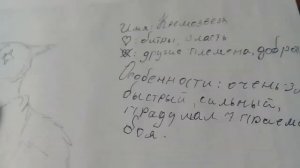 Имя: Кремозвезд
♡: битвы, власть
☒: другие племена, добро
Особенности: очень
быстрый, сильный,
придумал 7 приём
боя.